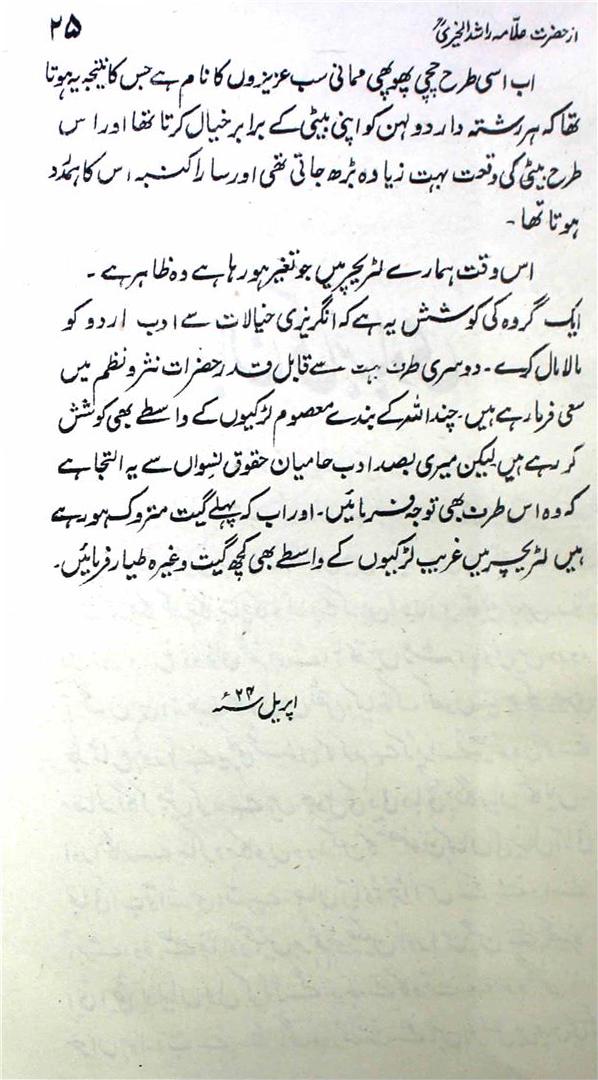 از حضرت علامہ راشد الخیریؒ
۲۵
اب اسی طرح چچی پھوپھی ممانی سب عزیزوں کا نام ہے جس کا نتیجہ یہ ہوتا
تھا کہ ہر رشتہ دار دولہن کو اپنی بیٹی کے برابر خیال کرتا تھا اور اس
طرح بیٹی کی وقعت بہت زیادہ بڑھ جاتی تھی اور سارا کنبہ اس کا ہمدرد
ہوتا تھا۔
اس وقت ہمارے لٹریچر میں جو تغیر ہو رہا ہے وہ ظاہر ہے۔
ایک گروہ کی کوشش یہ ہے کہ انگریزی خیالات سے ادب اردو کو
مالا مال کر دے۔ دوسری طرف بہت سے قابل قدر حضرات نثر و نظم میں
سعی فرما رہے ہیں۔ چند اللہ کے بندے معصوم لڑکیوں کے واسطے بھی کوشش
کر رہے ہیں لیکن میری بصد ادب حامیان حقوق نسواں سے یہ التجا ہے
کہ وہ اس طرف بھی توجہ فرمائیں۔ اور اب کہ پہلے گیت متروک ہو رہے
ہیں لٹریچر میں غریب لڑکیوں کے واسطے بھی کچھ گیت وغیرہ طیار فرمائیں۔
اپریل ۲۴ء